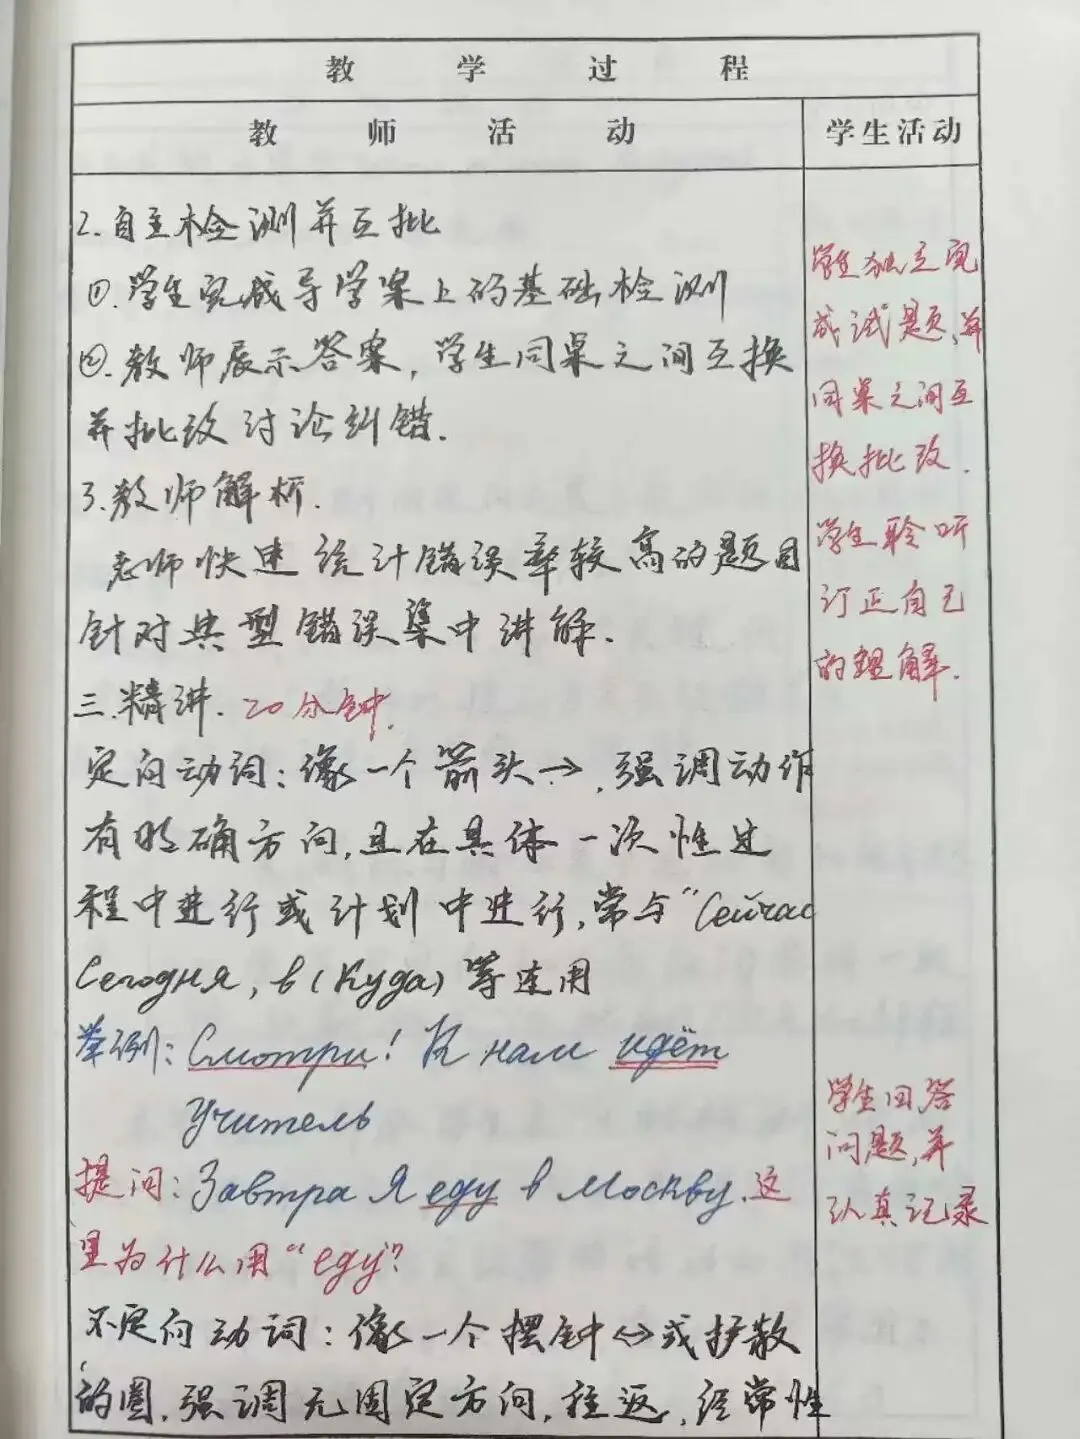 教学过程
教师活动
学生活动
2.自主检测并互批
①.学生完成导学案上的基础检测
②.教师展示答案,学生同桌之间互换
并批改讨论纠错.
3.教师解析.
老师快速统计错误率较高的题目
针对典型错误集中讲解.
三.精讲.20分钟.
定向动词:像一个箭头→,强调动作
有明确方向,且在具体一次性过
程中进行或计划中进行,常与"Сейчас
Сегодня, в (Куда)等连用
举例: Смотри! К нам идёт
Учитель
提问: Завтра Я еду в Москву.这
里为什么用"еду"?
不定向动词:像一个摆钟↔或扩散
的圈,强调无固定方向,往返,经常性
学生独立完
成试题,并
同桌之间互
换批改.
学生聆听
订正自己
的理解.
学生回答
问题,并
认真记录